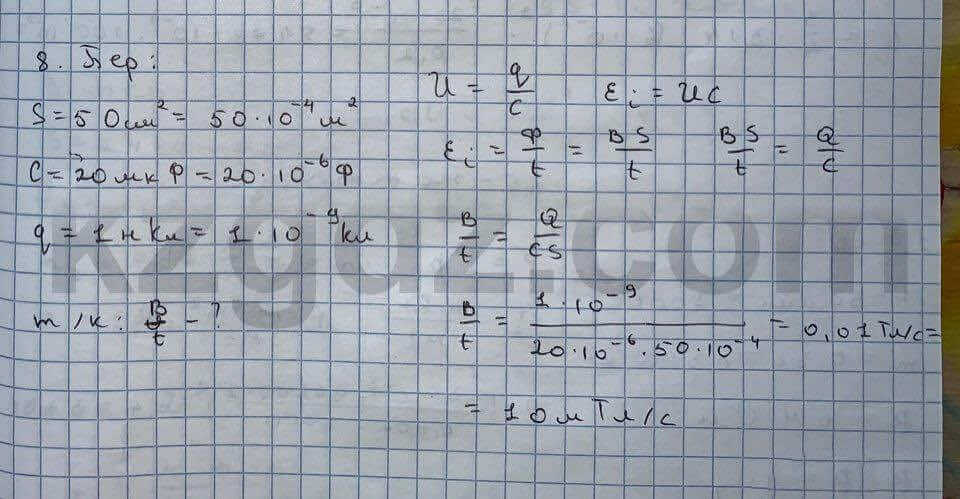 8. Бер:
S = 50 см² = 50·10⁻⁴ м²
C = 20 мк Ф = 20·10⁻⁶ Ф
q = 1 н Кл = 1·10⁻⁹ кл
т/к: B/t - ?
U = q/C   εi = UC
εi = Ф/t = BS/t   BS/t = Q/C
B/t = Q/CS
B/t = 1·10⁻⁹ / 20·10⁻⁶·50·10⁻⁴ = 0,01 Тл/с =
= 10 м Тл/с
kzgdz.com